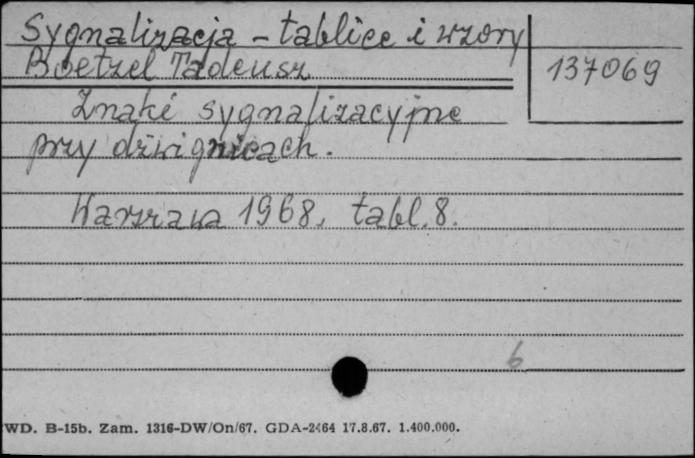 Sygnalizacja - tablice i wzory
Boetzel Tadeusz
137069
Znaki sygnalizacyjne
przy dźwignicach.
Warszawa 1968, tabl. 8.
6
WD. B-15b. Zam. 1316-DW/On/67. GDA-2464 17.8.67. 1.400.000.